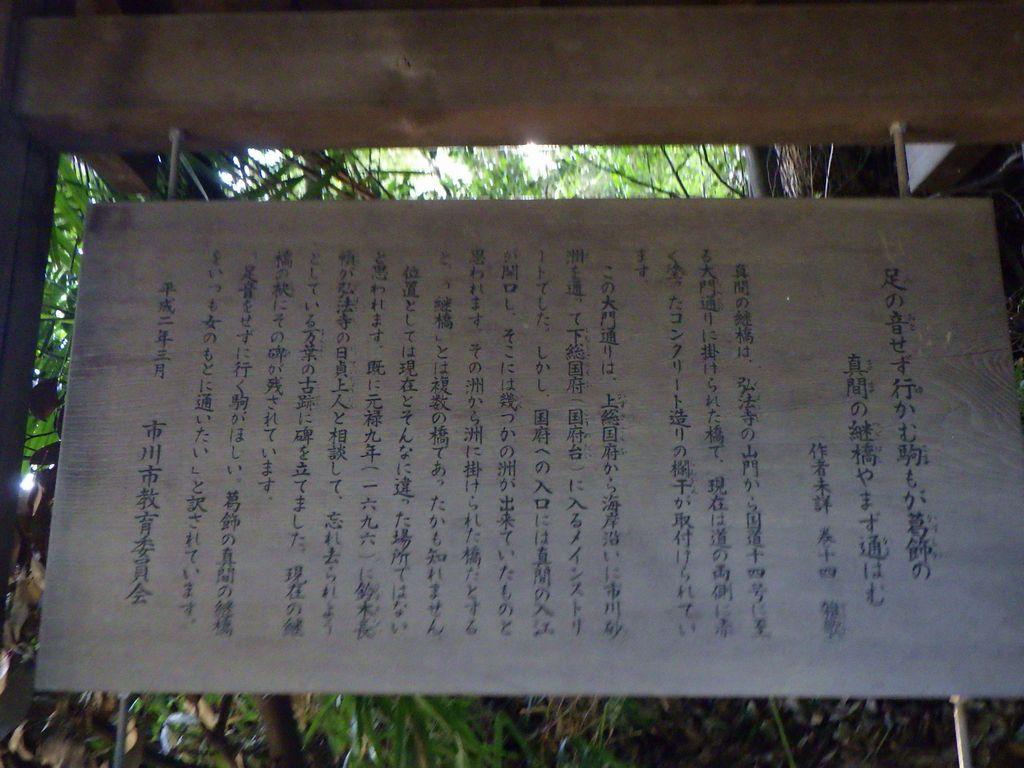 足の音せず行かむ駒もが葛飾の
真間の継橋やまず通はむ
作者未詳 巻十四 雑歌
真間の継橋は、弘法寺の山門から国道十四号に至
る大門通りに掛けられた橋で、現在は道の両側に赤
く塗ったコンクリート造りの欄干が取付けられてい
ます。
この大門通りは、上総国府から海岸沿いに市川砂
洲を通って下総国府（国府台）に入るメインストリ
ートでした。しかし、国府への入口には真間の入江
が開口し、そこには幾つかの洲が出来ていたものと
思われます。その洲から洲に掛けられた橋だとする
と、「継橋」とは複数の橋であったかも知れません。
位置としては現在とそんなに違った場所ではない
と思われます。既に元禄九年（一六九六）に鈴木長
頼が弘法寺の日貞上人と相談して、忘れ去られよう
としている万葉の古跡に碑を立てました。現在の継
橋の袂にその碑が残されています。
「足音をせずに行く駒がほしい。葛飾の真間の継橋
をいつも女のもとに通いたい」と訳されています。
平成二年三月
市川市教育委員会